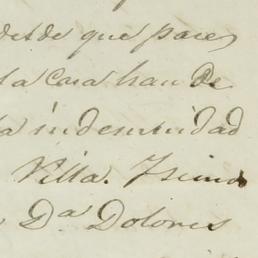 desde que pare
la casa han de
la indemnidad
Villa. Y siendo
Dª Dolores